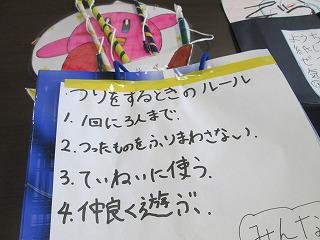 つりをするときのルール
1. 1回に3人まで.
2. つったものをふりまわさない.
3. ていねいに使う.
4. 仲良く遊ぶ.
みんな